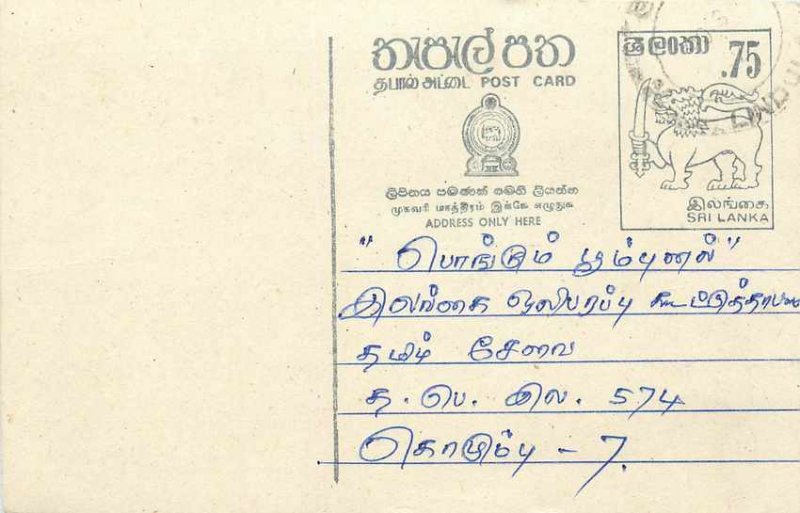 තැපැල් පත
தபால் அட்டை POST CARD
ශ්‍රී ලංකා
.75
இலங்கை
SRI LANKA
ලිපිනය පමණක් මෙහි ලියන්න
முகவரி மாத்திரம் இங்கே எழுதுக
ADDRESS ONLY HERE
"பொங்கும் பூம்புனல்"
இலங்கை ஒலிபரப்பு கூட்டுத்தாபனம்
தமிழ் சேவை
த. பெ. இல. 574
கொழும்பு - 7.